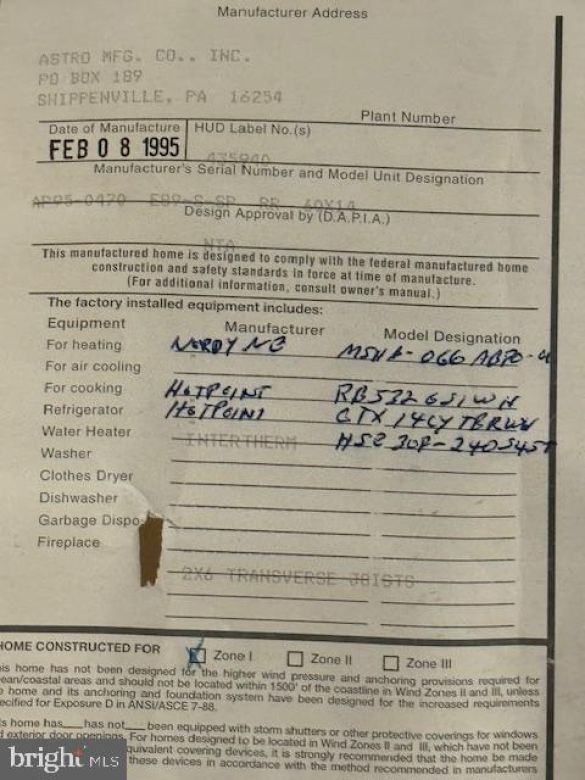 Manufacturer Address
ASTRO MFG. CO., INC.
PO BOX 189
SHIPPENVILLE, PA 16254
Plant Number
Date of Manufacture HUD Label No.(s)
FEB 08 1995
435940
Manufacturer's Serial Number and Model Unit Designation
AP95-0470
RR 60X14
Design Approval by (D.A.P.I.A.)
NTA
This manufactured home is designed to comply with the federal manufactured home
construction and safety standards in force at time of manufacture.
(For additional information, consult owner's manual.)
The factory installed equipment includes:
Equipment Manufacturer Model Designation
For heating
For air cooling
For cooking HOTPOINT
Refrigerator HOTPOINT
Water Heater INTERTHERM
Washer
Clothes Dryer
Dishwasher
Garbage Dispo
Fireplace
2X6 TRANSVERSE JOISTS
HOME CONSTRUCTED FOR Zone I Zone II Zone III
is home has not been designed for the higher wind pressure and anchoring provisions required for
ean/coastal areas and should not be located within 1500' of the coastline in Wind Zones II and III, unless
home and its anchoring and foundation system have been designed for the increased requirements
ecified for Exposure D in ANSI/ASCE 7-88.
s home has___ has not___been equipped with storm shutters or other protective coverings for windows
d exterior door openings. For homes designed to be located in Wind Zones II and III, which have not been
quivalent covering devices, it is strongly recommended that the home be made
these devices in accordance with the method recommended in manufacturers
bright MLS